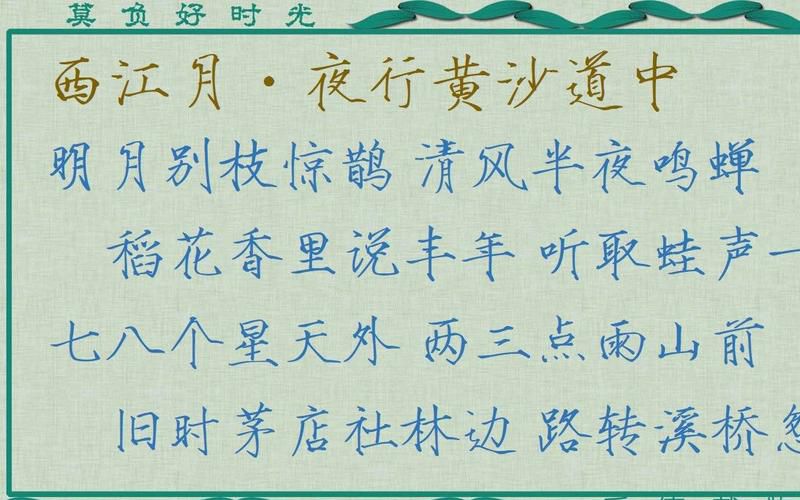 莫负好时光
西江月·夜行黄沙道中
明月别枝惊鹊 清风半夜鸣蝉
稻花香里说丰年 听取蛙声一
七八个星天外 两三点雨山前
旧时茅店社林边 路转溪桥